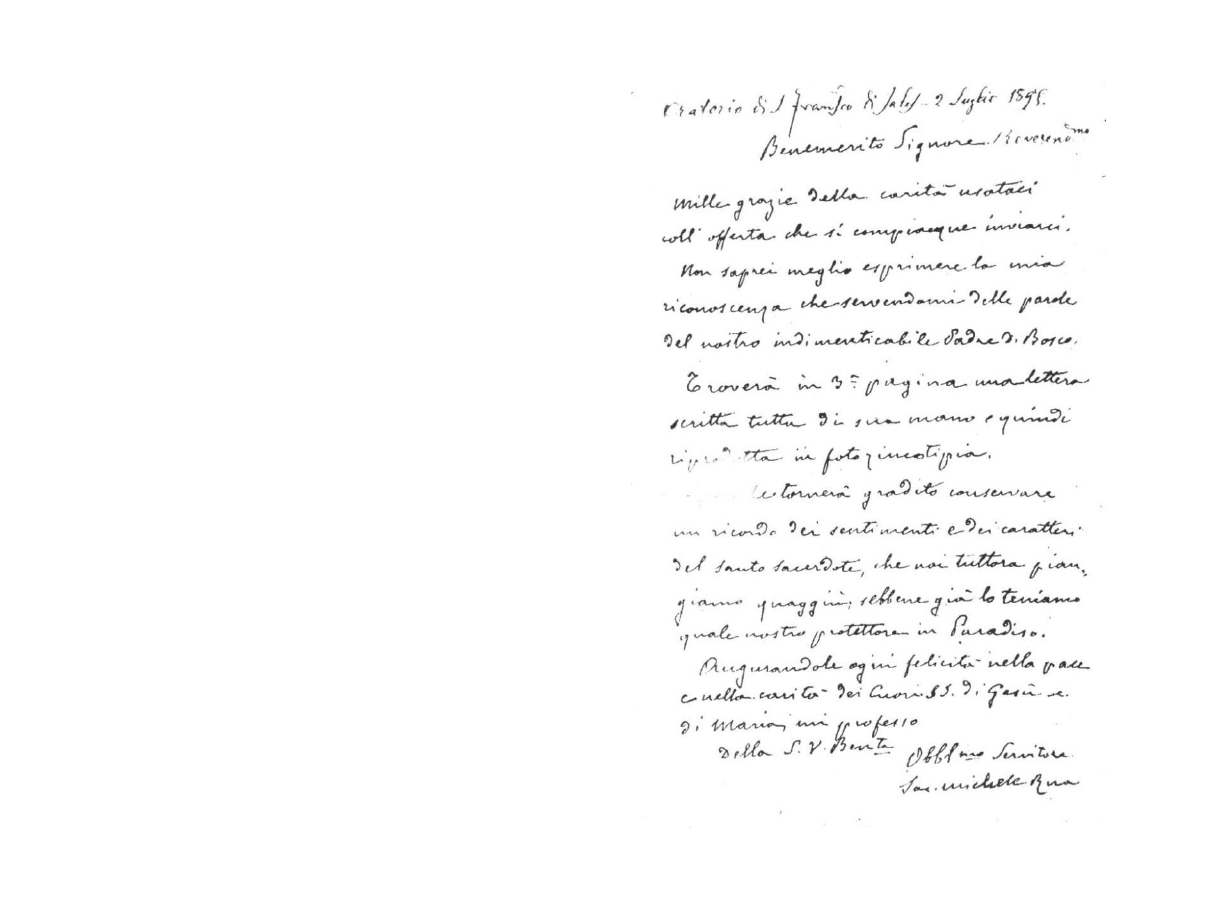 Oratorio di S Franſco di Sales - 2 Luglio 1895.
Benemerito Signore Reverendmo
Mille grazie della carità usataci
coll' offerta che si compiacque inviarci.
Non saprei meglio esprimere la mia
riconoscenza che servendomi delle parole
del nostro indimenticabile Padre D. Bosco.
Troverà in 3ª pagina una lettera
scritta tutta di sua mano e quindi
riprodotta in fotozincotipia.
Le tornerà gradito conservare
un ricordo dei sentimenti e dei caratteri
del santo sacerdote, che noi tuttora pian-
giamo quaggiù, sebbene già lo teniamo
quale nostro protettore in Paradiso.
Augurandole ogni felicità nella pace
e nella carità dei Cuori SS. di Gesù e
di Maria, mi professo
Della S. V. Benta
Obblmo Servitore
Sac. Michele Rua